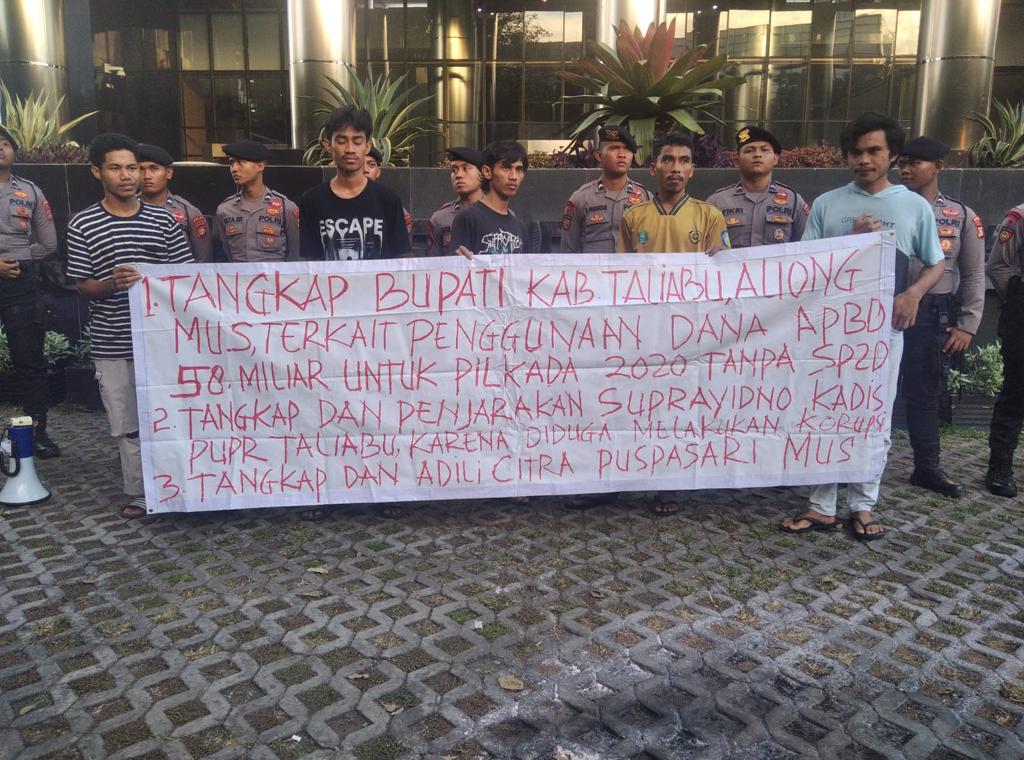 1. TANGKAP BUPATI KAB. TALIABU, ALIONG
MUS, TERKAIT PENGGUNAAN DANA APBD
58, MILIAR UNTUK PILKADA 2020 TANPA SP2D
2. TANGKAP DAN PENJARAKAN SUPRAYIDNO KADIS
PUPR TALIABU, KARENA DIDUGA MELAKUKAN KORUPSI
3. TANGKAP DAN ADILI CITRA PUSPASARI MUS
ESCAPE
POLRI
POLRI
POLRI
FIKRI
POLRI
POLRI